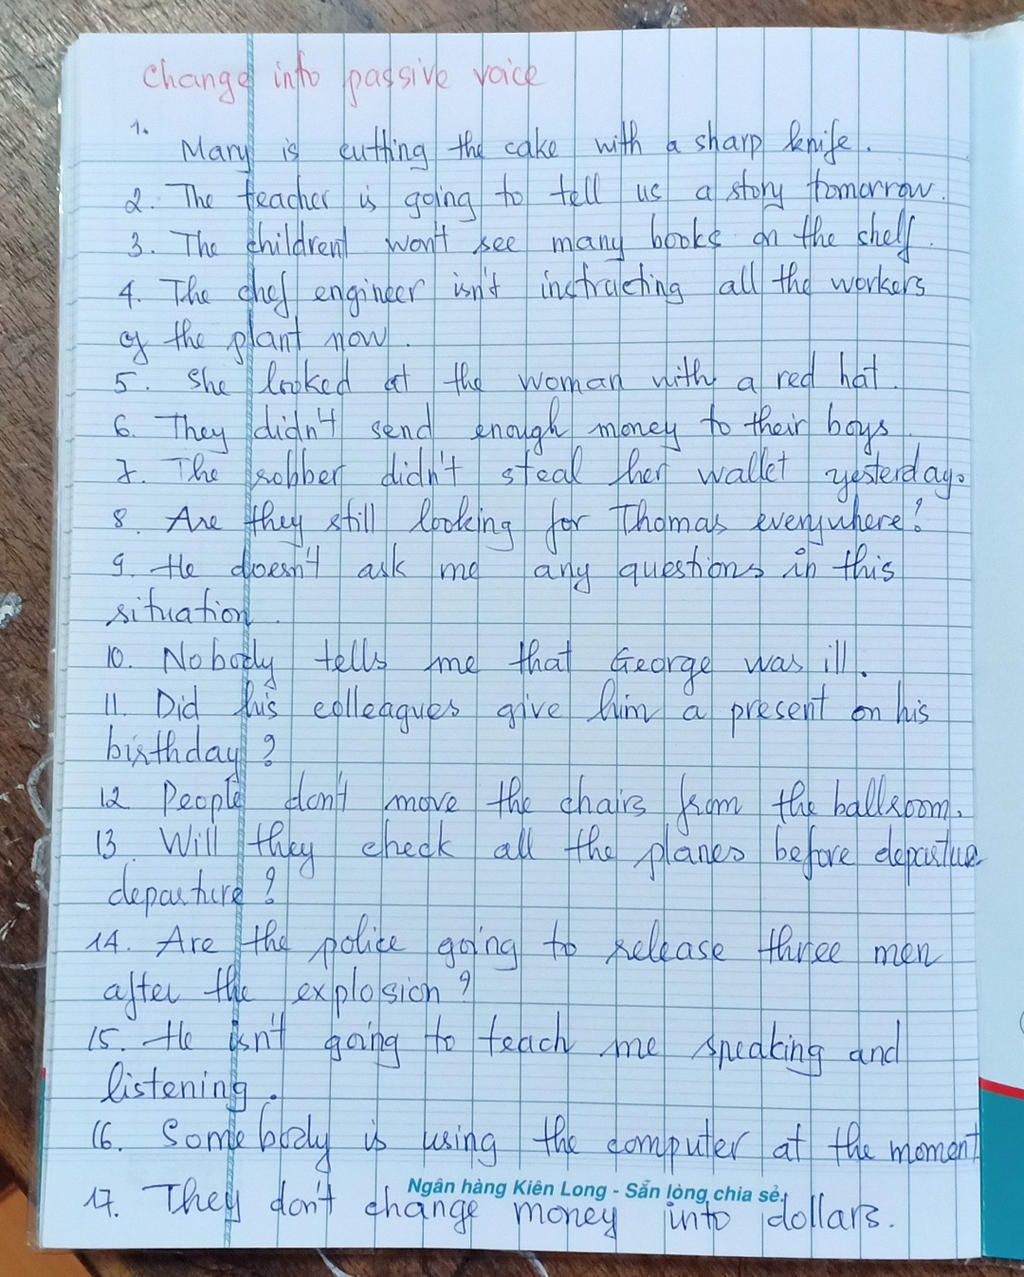 Change into passive voice
1.
Mary is cutting the cake with a sharp knife.
2. The teacher is going to tell us a story tomorrow.
3. The children won't see many books on the shelf.
4. The chef engineer isn't instructing all the workers
of the plant now.
5. She looked at the woman with a red hat.
6. They didn't send enough money to their boys
7. The robber didn't steal her wallet yesterday.
8. Are they still looking for Thomas everywhere?
9. He doesn't ask me any questions in this
situation.
10. Nobody tells me that George was ill.
11. Did his colleagues give him a present on his
birthday?
12 People don't move the chairs from the ballroom.
13. Will they check all the planes before
departure?
14. Are the police going to release three men
after the explosion?
15. He isn't going to teach me speaking and
listening.
16. Somebody is using the computer at the moment
Ngân hàng Kiên Long - Sẵn lòng chia sẻ!
17. They don't change money into dollars.